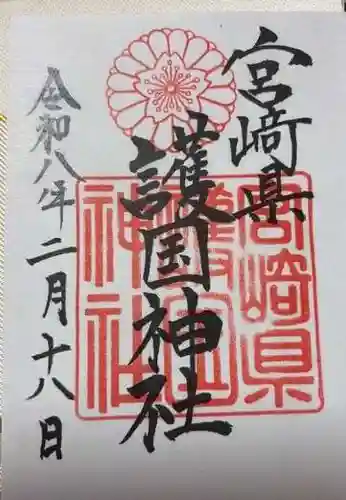 宮崎県
護国神社
令和八年二月十八日
宮崎県
護国
神社